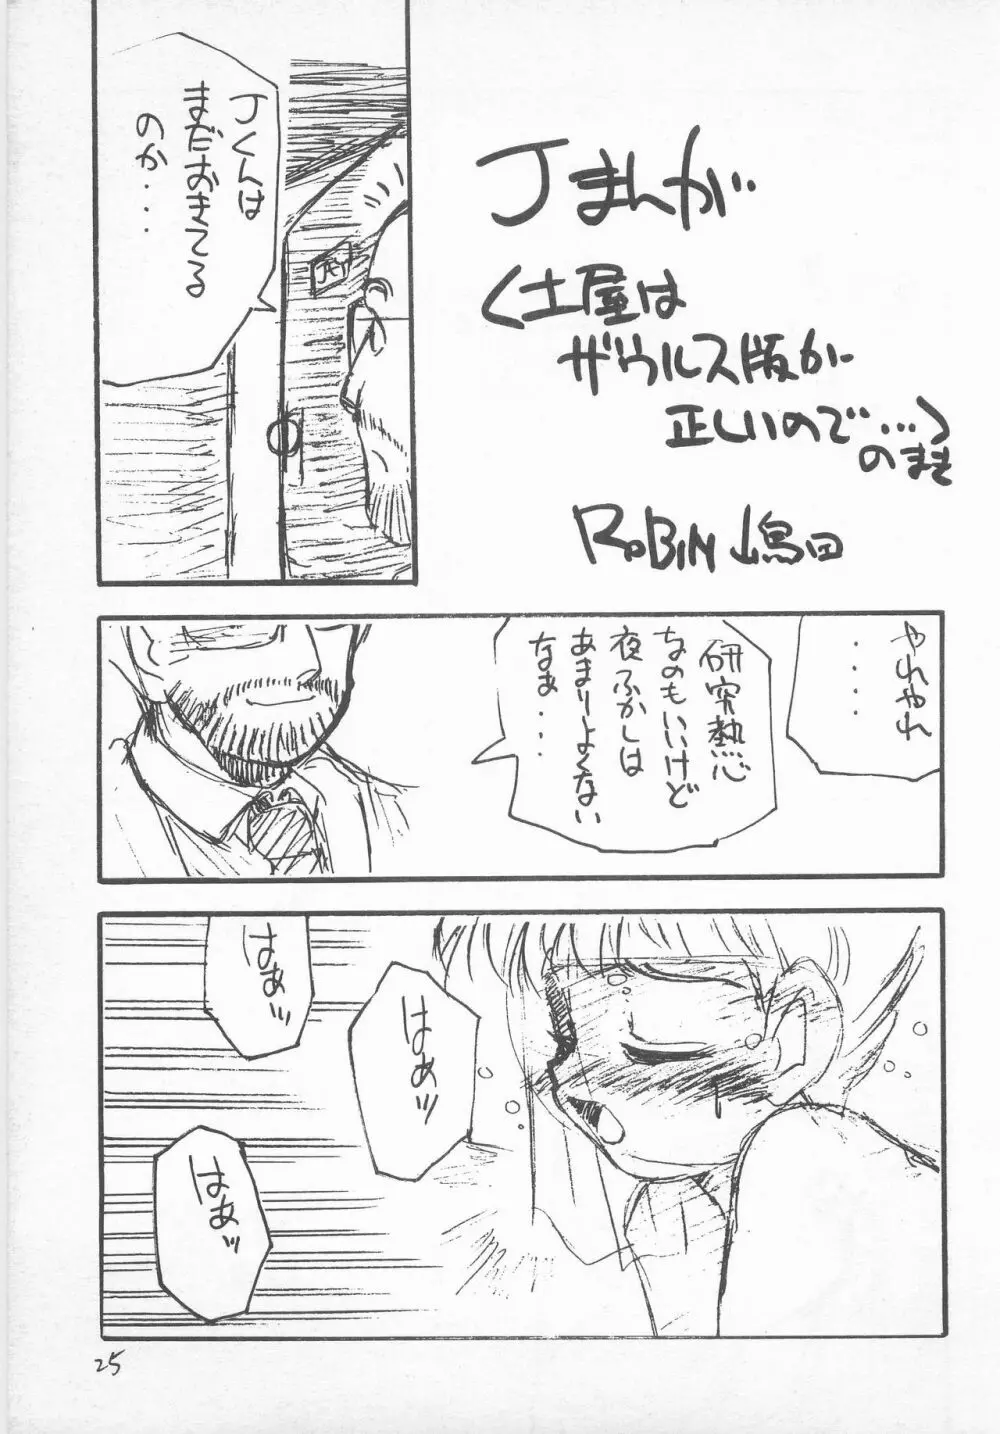 Jまんが
(土屋は
ザウルス版が
正しいので…)
のまき
RoBiN 嶋田
Jくんは
まだおきてる
のか・・・
JEY
やれやれ
・・・・
研究熱心
なのもいいけど
夜ふかしは
あまりよくない
なぁ・・・
はぁッ
はぁッ
はぁッ
25